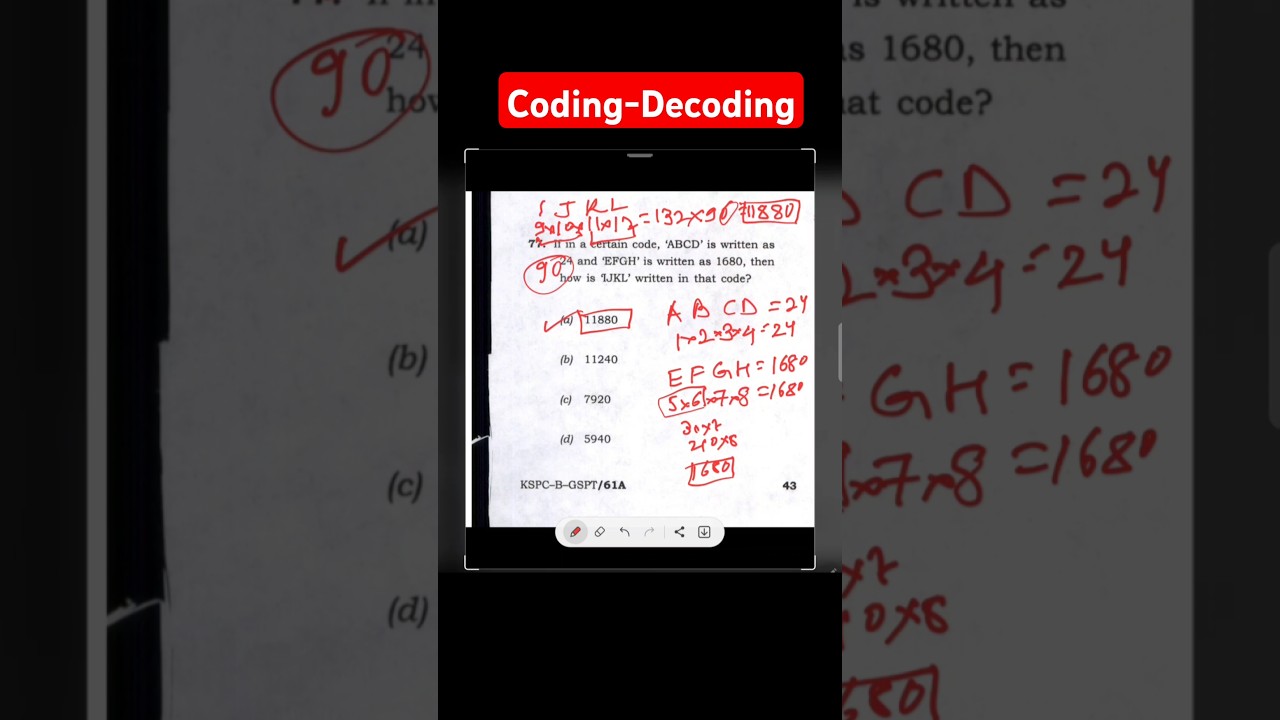 Coding-Decoding
I J K L
9x10x11x12 = 132x90 = 11880
77. If in a certain code, 'ABCD' is written as
24 and 'EFGH' is written as 1680, then
how is 'IJKL' written in that code?
90
(a) 11880
(b) 11240
(c) 7920
(d) 5940
A B C D = 24
1x2x3x4 = 24
E F G H = 1680
5x6x7x8 = 1680
30x7
210x8
1680
KSPC–B–GSPT/61A
43